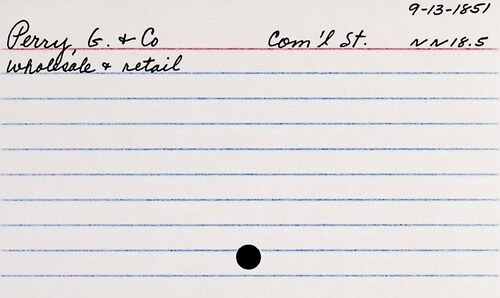 9-13-1851
Perry, G. & Co Com'l St. NN18.5
wholesale & retail